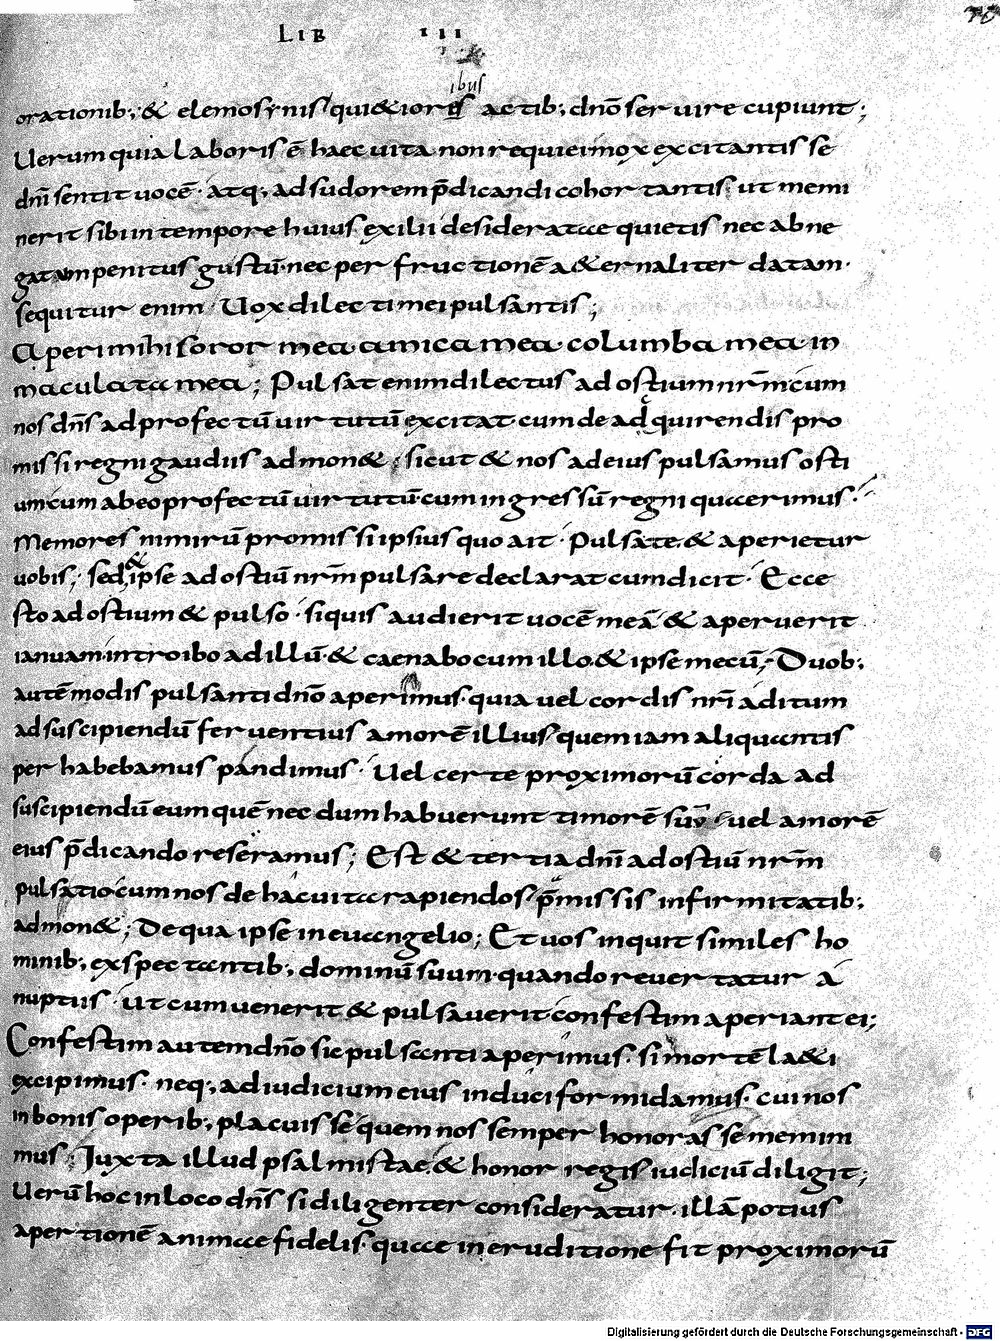 LIB III
orationib; & elemosynis qui & iorib; ibus actib; dnō servire cupiunt;
Uerum quia laboris ē haec uita non requiei mox excitantis se
dn̄i sentit uocē atq; ad sudorem p̄dicandi cohortantis ut memi
nerit sibi in tempore huius exilii desideratae quietis nec abne
gatam penitus gustū nec per fructionē a&ernaliter datam
sequitur enim Uox dilecti mei pulsantis;
Aperi mihi soror mea amica mea columba mea in
maculata mea; Pulsat enim dilectus ad ostium nr̄m cum
nos dn̄s ad profectū uirtutū excitat cum de adquirendis pro
missi regni gaudiis admon& sicut & nos ad eius pulsamus osti
um cum ab eo profectū uirtutū cum ingressū regni quaerimus
Memores nimirū promissi ipsius quo ait Pulsate & aperietur
uobis; sed & ipse ad ostiū nr̄m pulsare declarat cum dicit Ecce
sto ad ostium & pulso siquis audierit uocē meā & aperuerit
ianuam introibo ad illū & caenabo cum illo & ipse mecū; Duob;
autē modis pulsanti dnō aperimus quia uel cordis nr̄i aditum
ad suscipiendū feruentius amorē illius quem iam aliquantis
per habebamus pandimus Uel certe proximorū corda ad
suscipiendū eum quē necdum habuerunt timorē suū uel amorē
eius p̄dicando reseramus; Est & tertia dn̄i ad ostiū nr̄m
pulsatio cum nos de hac uita rapiendos p̄missis infirmitatib;
admon&; De qua ipse in euangelio; Et uos inquit similes ho
minib; exspectantib; dominū suum quando reuertatur a
nuptiis ut cum uenerit & pulsauerit confestim aperiant ei;
Confestim autem dnō sic pulsanti aperimus si mortē la&i
excipimus neq; ad iudicium eius induci formidamus cui nos
in bonis operib; placuisse quem nos semper honorasse memini
mus Iuxta illud psalmistae & honor regis iudiciū diligit;
Uerū hoc in loco dn̄s si diligenter consideratur illā potius
apertionē animae fidelis quae in eruditione fit proximorū
Digitalisierung gefördert durch die Deutsche Forschungsgemeinschaft - DFG